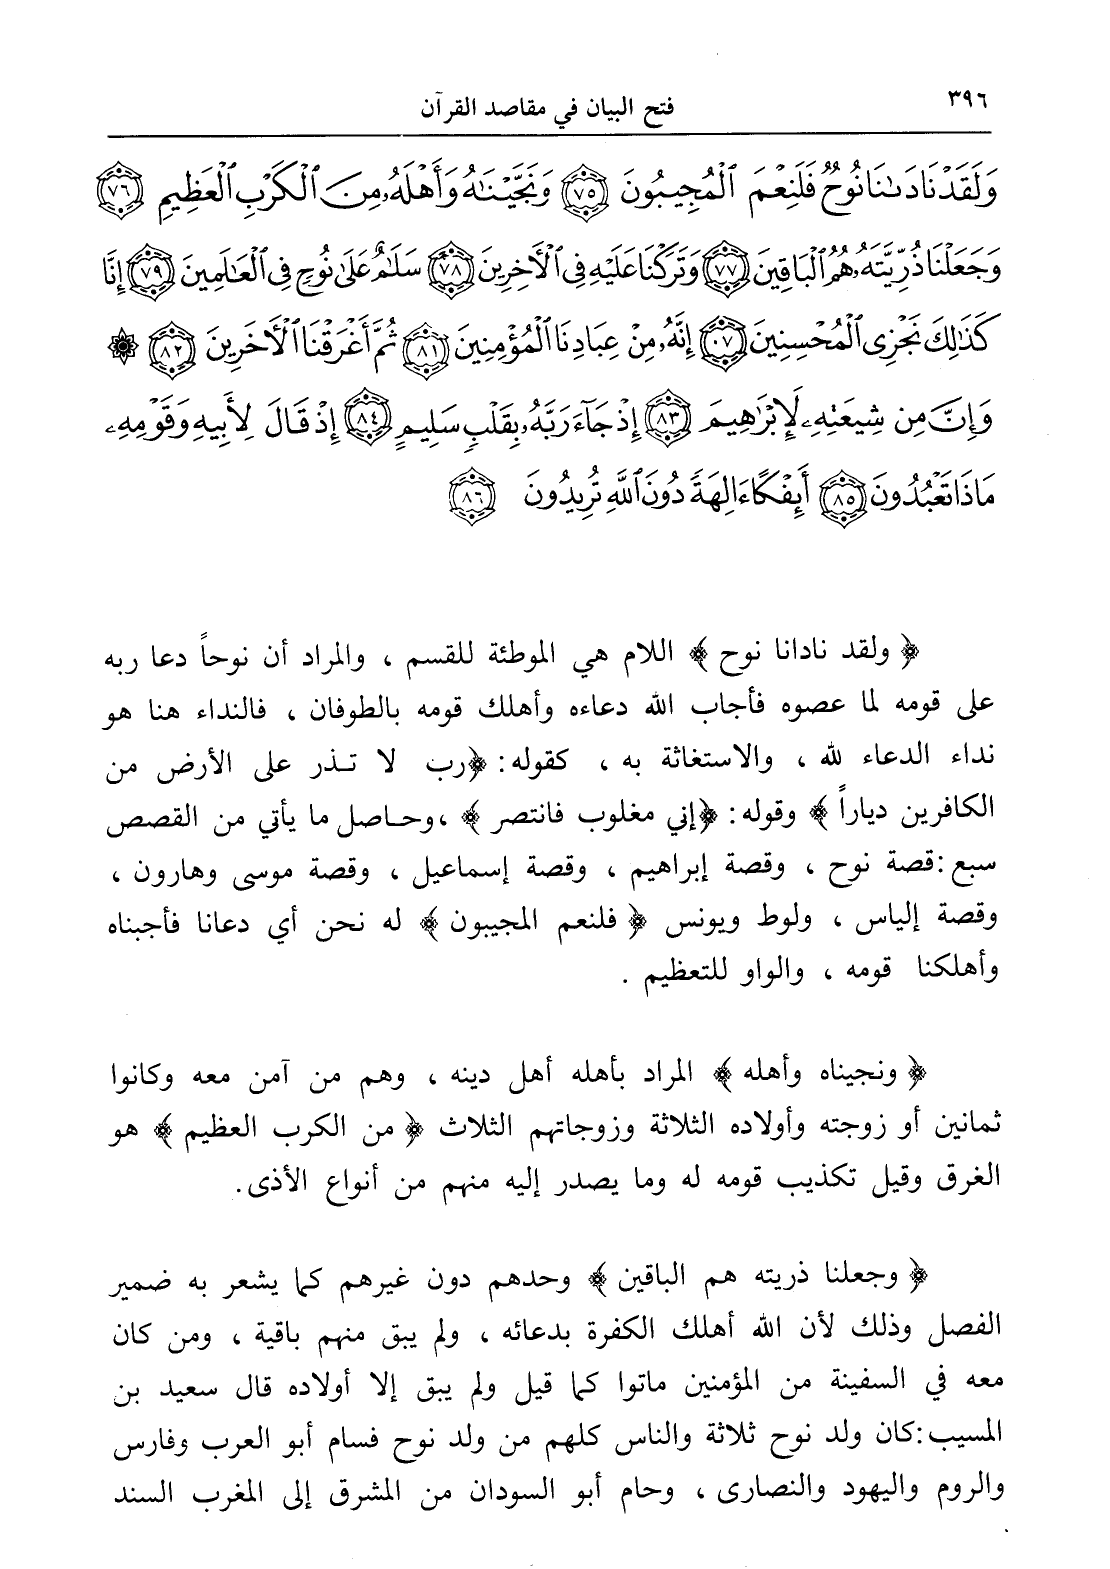 ٣٩٦
فتح البيان في مقاصد القرآن
وَلَقَدْ نَادَىٰنَا نُوحٌ فَلَنِعْمَ ٱلْمُجِيبُونَ ٧٥ وَنَجَّيْنَٰهُ وَأَهْلَهُۥ مِنَ ٱلْكَرْبِ ٱلْعَظِيمِ ٧٦
وَجَعَلْنَا ذُرِّيَّتَهُۥ هُمُ ٱلْبَاقِينَ ٧٧ وَتَرَكْنَا عَلَيْهِ فِى ٱلْأَخِرِينَ ٧٨ سَلَٰمٌ عَلَىٰ نُوحٍ فِى ٱلْعَٰلَمِينَ ٧٩ إِنَّا
كَذَٰلِكَ نَجْزِى ٱلْمُحْسِنِينَ ٠٧ إِنَّهُۥ مِنْ عِبَادِنَا ٱلْمُؤْمِنِينَ ٨١ ثُمَّ أَغْرَقْنَا ٱلْأَخَرِينَ ٨٢ ۞
وَإِنَّ مِن شِيعَتِهِۦ لَإِبْرَٰهِيمَ ٨٣ إِذْ جَآءَ رَبَّهُۥ بِقَلْبٍ سَلِيمٍ ٨٤ إِذْ قَالَ لِأَبِيهِ وَقَوْمِهِۦ
مَاذَا تَعْبُدُونَ ٨٥ أَئِفْكًا ءَالِهَةً دُونَ ٱللَّهِ تُرِيدُونَ ٨٦
﴿ ولقد نادانا نوح ﴾ اللام هي الموطئة للقسم ، والمراد أن نوحاً دعا ربه
على قومه لما عصوه فأجاب الله دعاءه وأهلك قومه بالطوفان ، فالنداء هنا هو
نداء الدعاء لله ، والاستغاثة به ، كقوله: ﴿رب لا تـذر على الأرض من
الكافرين دياراً ﴾ وقوله: ﴿إني مغلوب فانتصر ﴾ ،وحـاصل ما يأتي من القصص
سبع :قصة نوح ، وقصة إبراهيم ، وقصة إسماعيل ، وقصة موسى وهارون ،
وقصة إلياس ، ولوط ويونس ﴿ فلنعم المجيبون ﴾ له نحن أي دعانا فأجبناه
وأهلكنا قومه ، والواو للتعظيم .
﴿ ونجيناه وأهله ﴾ المراد بأهله أهل دينه ، وهم من آمن معه وكانوا
ثمانين أو زوجته وأولاده الثلاثة وزوجاتهم الثلاث ﴿ من الكرب العظيم ﴾ هو
الغرق وقيل تكذيب قومه له وما يصدر إليه منهم من أنواع الأذى.
﴿ وجعلنا ذريته هم الباقين ﴾ وحدهم دون غيرهم كما يشعر به ضمير
الفصل وذلك لأن الله أهلك الكفرة بدعائه ، ولم يبق منهم باقية ، ومن كان
معه في السفينة من المؤمنين ماتوا كما قيل ولم يبق إلا أولاده قال سعيد بن
المسيب :كان ولد نوح ثلاثة والناس كلهم من ولد نوح فسام أبو العرب وفارس
والروم واليهود والنصارى ، وحام أبو السودان من المشرق إلى المغرب السند